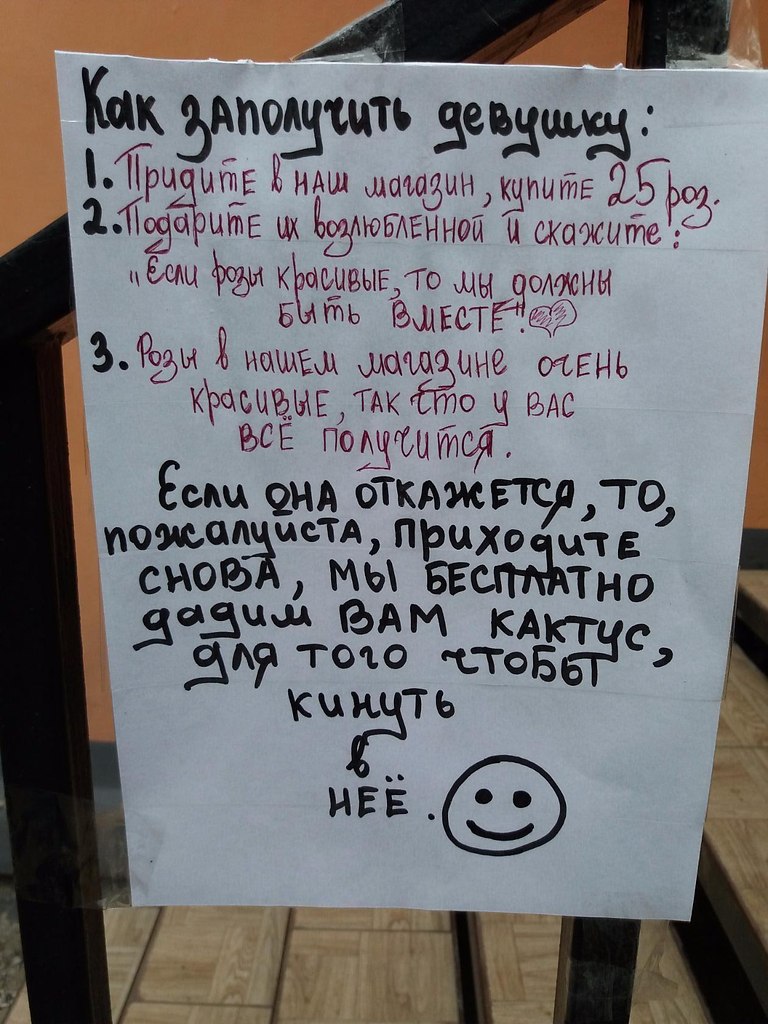 Как заполучить девушку:
1. Придите в наш магазин, купите 25 роз.
2. Подарите их возлюбленной и скажите:
„Если розы красивые, то мы должны
быть вместе"!
3. Розы в нашем магазине очень
красивые, так что у вас
всё получится.
Если она откажется, то,
пожалуиста, приходите
снова, мы бесплатно
дадим вам кактус,
для того чтобы
кинуть
в
неё.